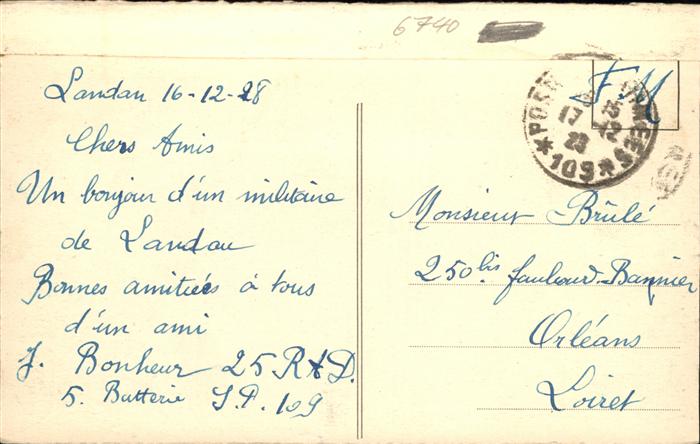 6740
Landau 16-12-28
Chers Amis
Un bonjour d'un militaire
de Landau
Bonnes amitiées à tous
d'un ami
J. Bonheur 25 RAD.
5. Butterie S.P. 109
FM
POSTE
ARMEES
17
12
28
*109*
Monsieur Brûlé
250bis faubourd-Bannier
Orléans
Loiret